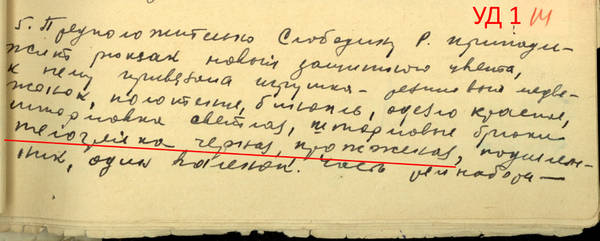 УД 1 14
5. Предположительно Слободину Р. принадле-
жит рюкзак новый защитного цвета,
к нему привязана игрушка - резиновый медве-
жонок, полотенце, бинокль, одеяло красное,
штормовка светлая, штормовые брюки
телогрейка черная, прожженая, подшлем-
ник, один валенок. Часть ремнабора -